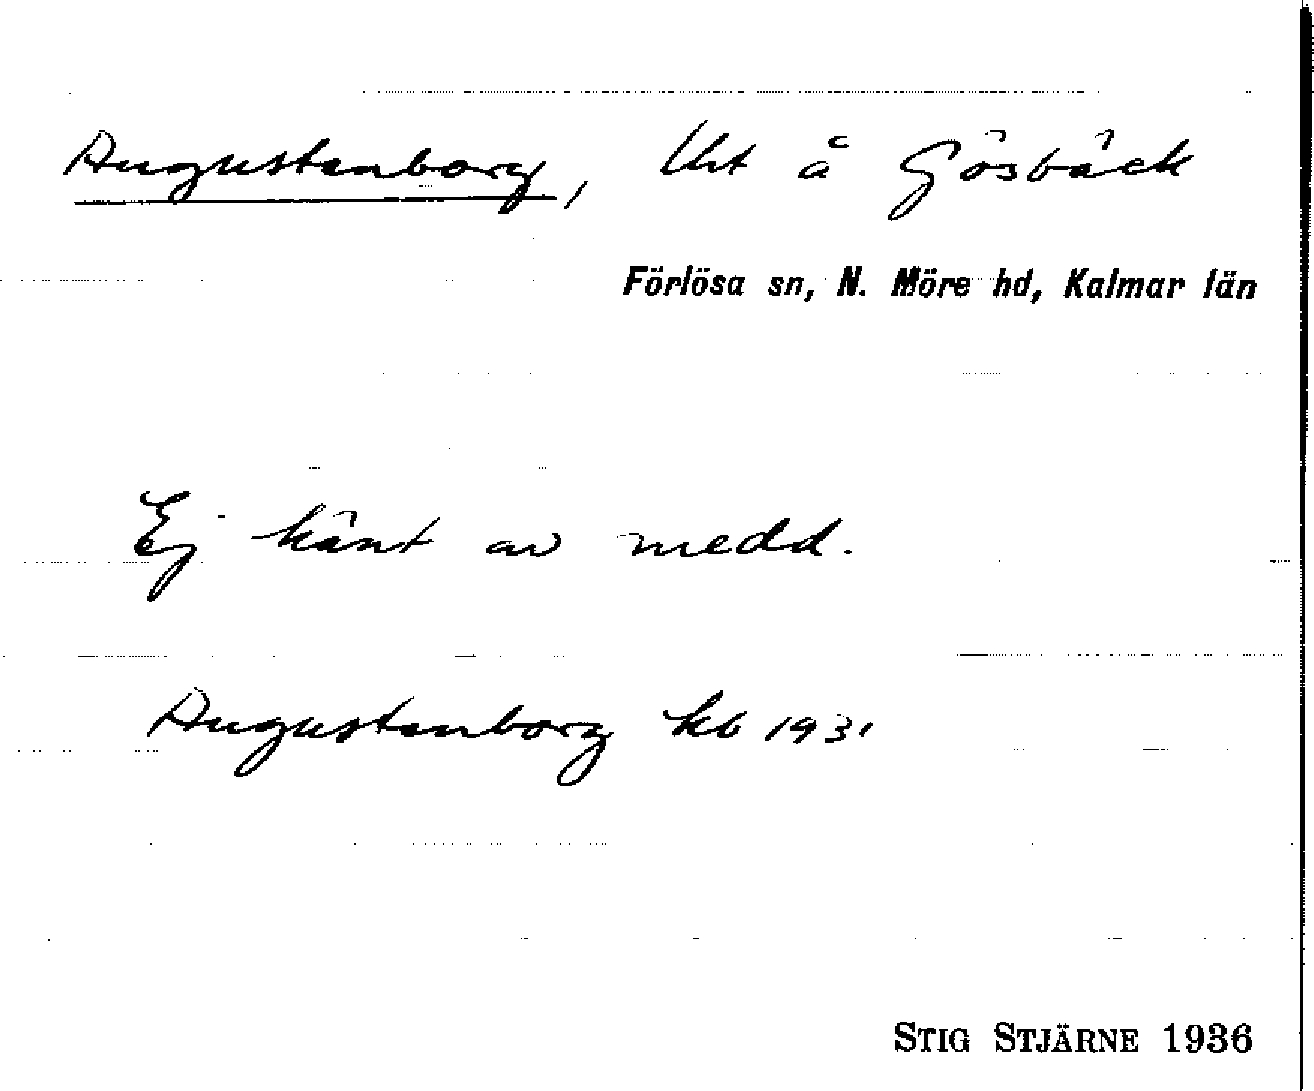 Augustenborg, Lht å Gösbäck
Förlösa sn, N. Möre hd, Kalmar län
Ej känt av medd.
Augustenborg kb 1931
STIG STJÄRNE 1936